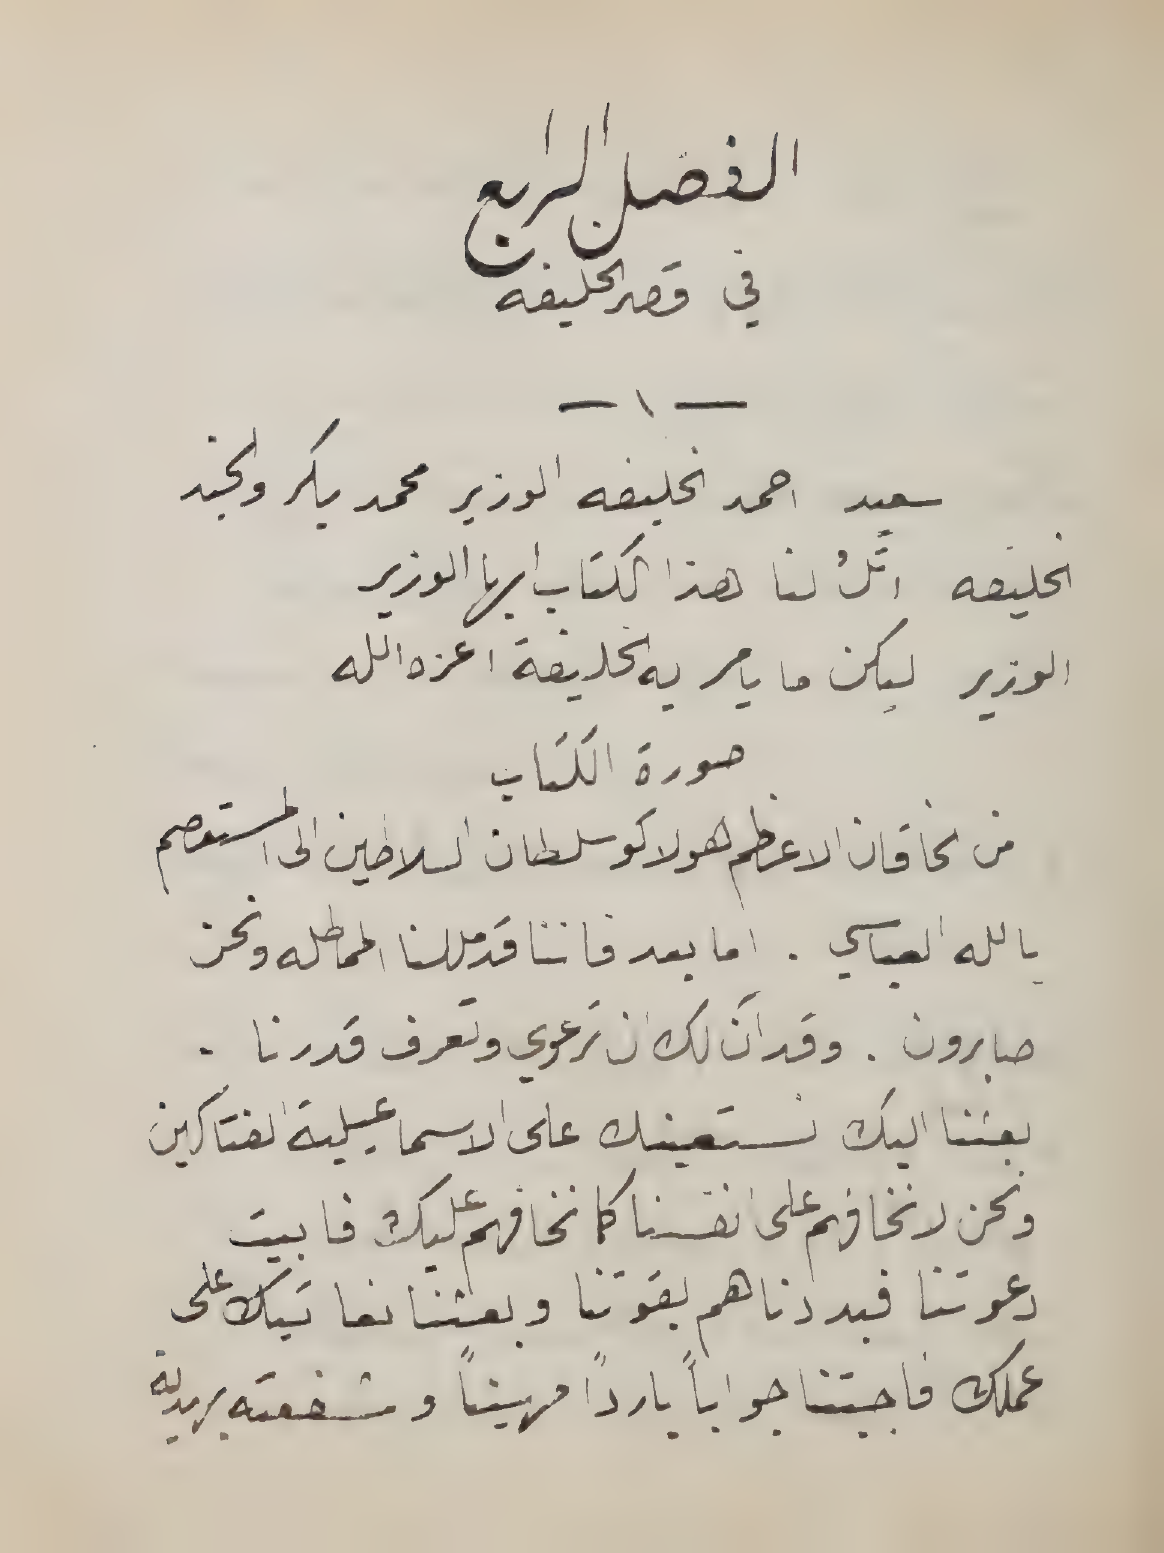 الفصل الرابع
في قصر الخليفه
— ١ —
سعيد احمد الخليفه الوزير محمد بكر والجند
الخليفه اتلُ لنا هذا الكتاب ايها الوزير
الوزير ليكن ما يامر به الخليفة اعزه الله
صورة الكتاب
من الخاقان الاعظم هولاكو سلطان السلاطين الى المستعصم
بالله العباسي . اما بعد فاننا قد مللنا المماطله ونحن
صابرون . وقد آن لك ان ترعوي وتعرف قدرنا .
بعثنا اليك نستعينك على الاسماعيلية الفتاكين
ونحن لا نخافهم على انفسنا كما نخافهم عليك فابيت
دعوتنا فبددناهم بقوتنا وبعثنا نعاتبك على
عملك فاجبتنا جواباً بارداً مهيناً وشفعته بهدية